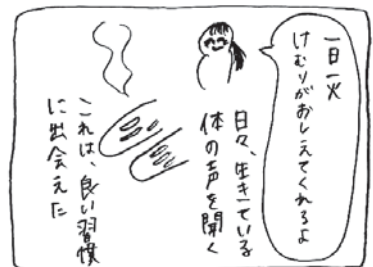 一日一火
けむりがおしえてくれるよ
日々、生きている
体の声を聞く
これは、良い習慣
に出会えた